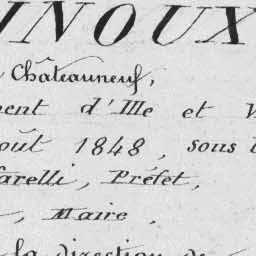 INOUX
Châteauneuf,
ment d'Ille et V
oût 1848, sous l
farelli, Préfet,
, Maire,
la direction de